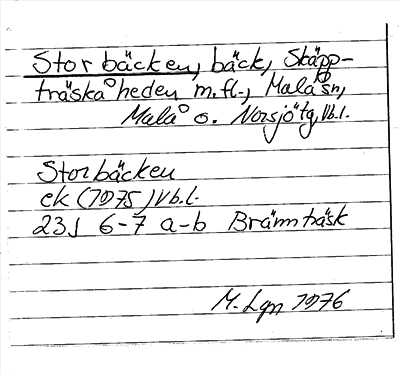 Storbäcken, bäck, Skäpp-
träskåheden m.fl., Malå sn,
Malå o. Norsjö tg, Vb.l.
Storbäcken
ek (1975) Vb.l.
23J 6-7 a-b Brännträsk
M. Lgn 1976